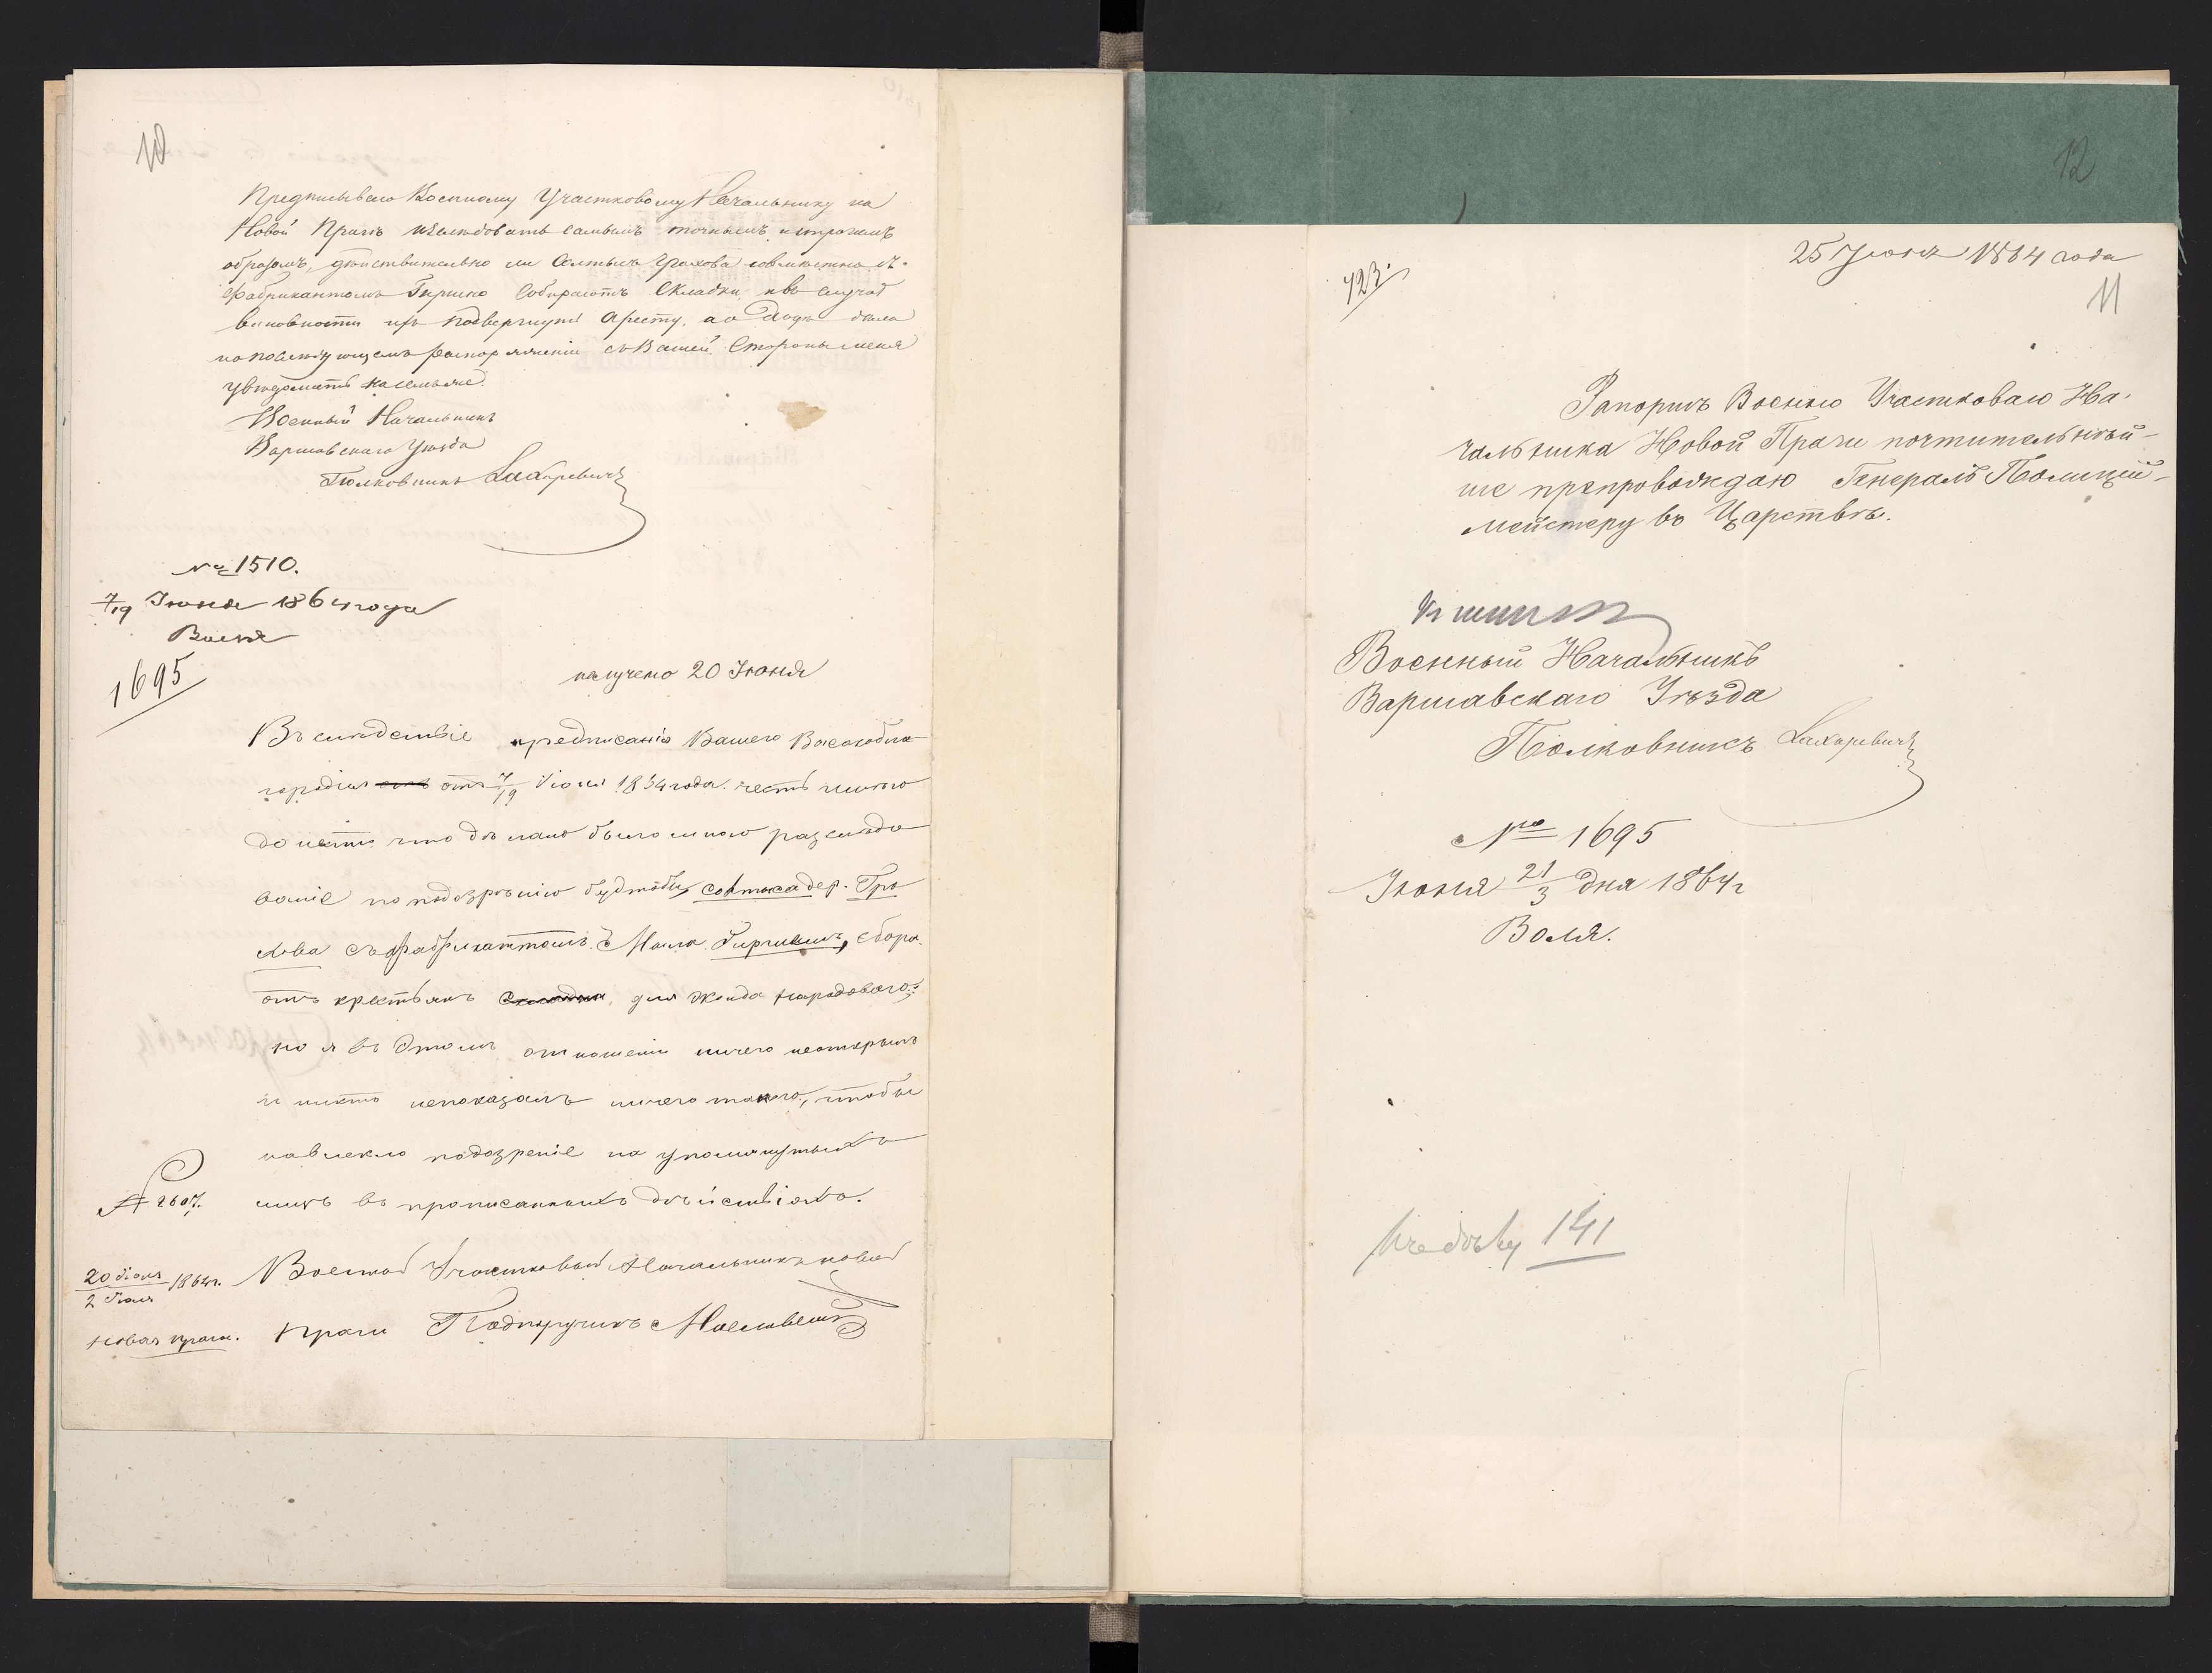 10
Предписываю Военному Участковому Начальнику на
Новой Прагѣ изслѣдовать самымъ точнымъ и строгимъ
образомъ, дѣйствительно ли Солтысъ Грохова совмѣстно съ
фабрикантомъ собираютъ складки, и въ случаѣ
виновности ихъ подвергнуть аресту, а о
по послѣдующемъ распоряженіи съ Вашей Стороны меня
увѣдомить на семъ же.
Военный Начальникъ
Варшавскаго Уѣзда
Полковникъ Лахаревичъ
№ 1510.
7/19 Июня 1864 года
Воля
1695
получено 20 Июня
Въ слѣдствіе предписанія Вашего Высокобла-
городія отъ 7/19 Іюня 1864 года честь имѣю
донести что дѣлано было мною разслѣдо
ваніе по подозрѣнію будтобы солтыса дер. Гро
хова съ фабрикантомъ Гиргинымъ, сборъ
отъ крестьянъ складки, для Жонда Народоваго;
но я въ этомъ отношеніи ничего неоткрылъ
и никто непоказалъ ничего такого, чтобы
навлекло подозреніе на упомянутыхъ
лицъ въ прописанныхъ дѣйствіяхъ.
№ 2607.
20 Іюня / 2 Іюля 1864 г.
Новая Прага.
Военной Участковый Начальникъ новой
Праги Подпоручикъ
12
25 Июня 1864 года
423.
11
Рапортъ Военнаго Участковаго На-
чальника Новой Праги почтительнѣй-
ше препровождаю Генералъ Полицій-
мейстеру въ Царствѣ.
Военный Начальникъ
Варшавскаго Уѣзда
Полковникъ Лахаревичъ
№ 1695
Июня 21/3 дня 1864 г
Воля.
141